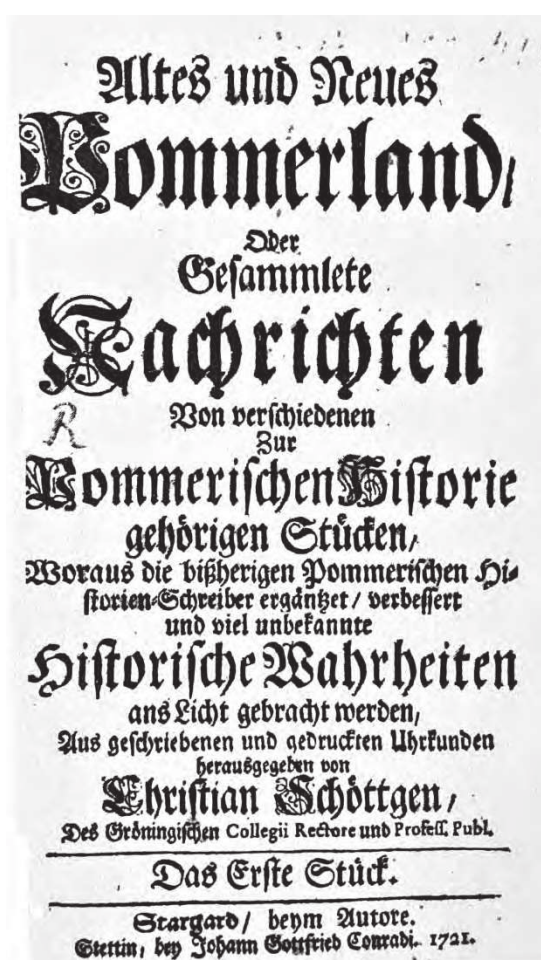 Altes und Neues
Pommerland/
Oder
Gesammlete
Nachrichten
Von verschiedenen
R
Zur
Pommerischen Historie
gehörigen Stücken/
Woraus die bißherigen Pommerischen Hi-
storien-Schreiber ergäntzet/ verbessert
und viel unbekannte
Historische Wahrheiten
ans Licht gebracht werden/
Aus geschriebenen und gedruckten Uhrkunden
herausgegeben von
Christian Schöttgen/
Des Gröningischen Collegii Rectore und Profess. Publ.
Das Erste Stück.
Stargard/ beym Autore.
Stettin, bey Johann Gottfried Conradi. 1721.